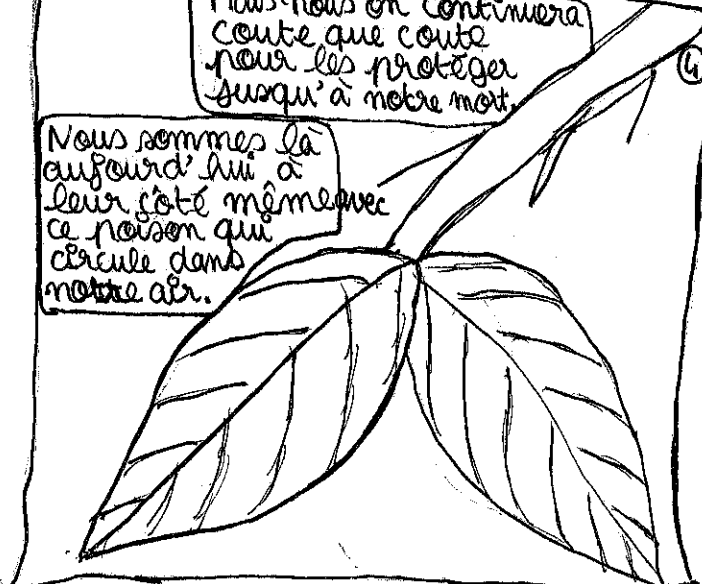 Mais nous on continuera
coute que coute
pour les protéger
jusqu'à notre mort.
4
Nous sommes là
aujourd'hui à
leur côté même avec
ce poison qui
circule dans
notre air.